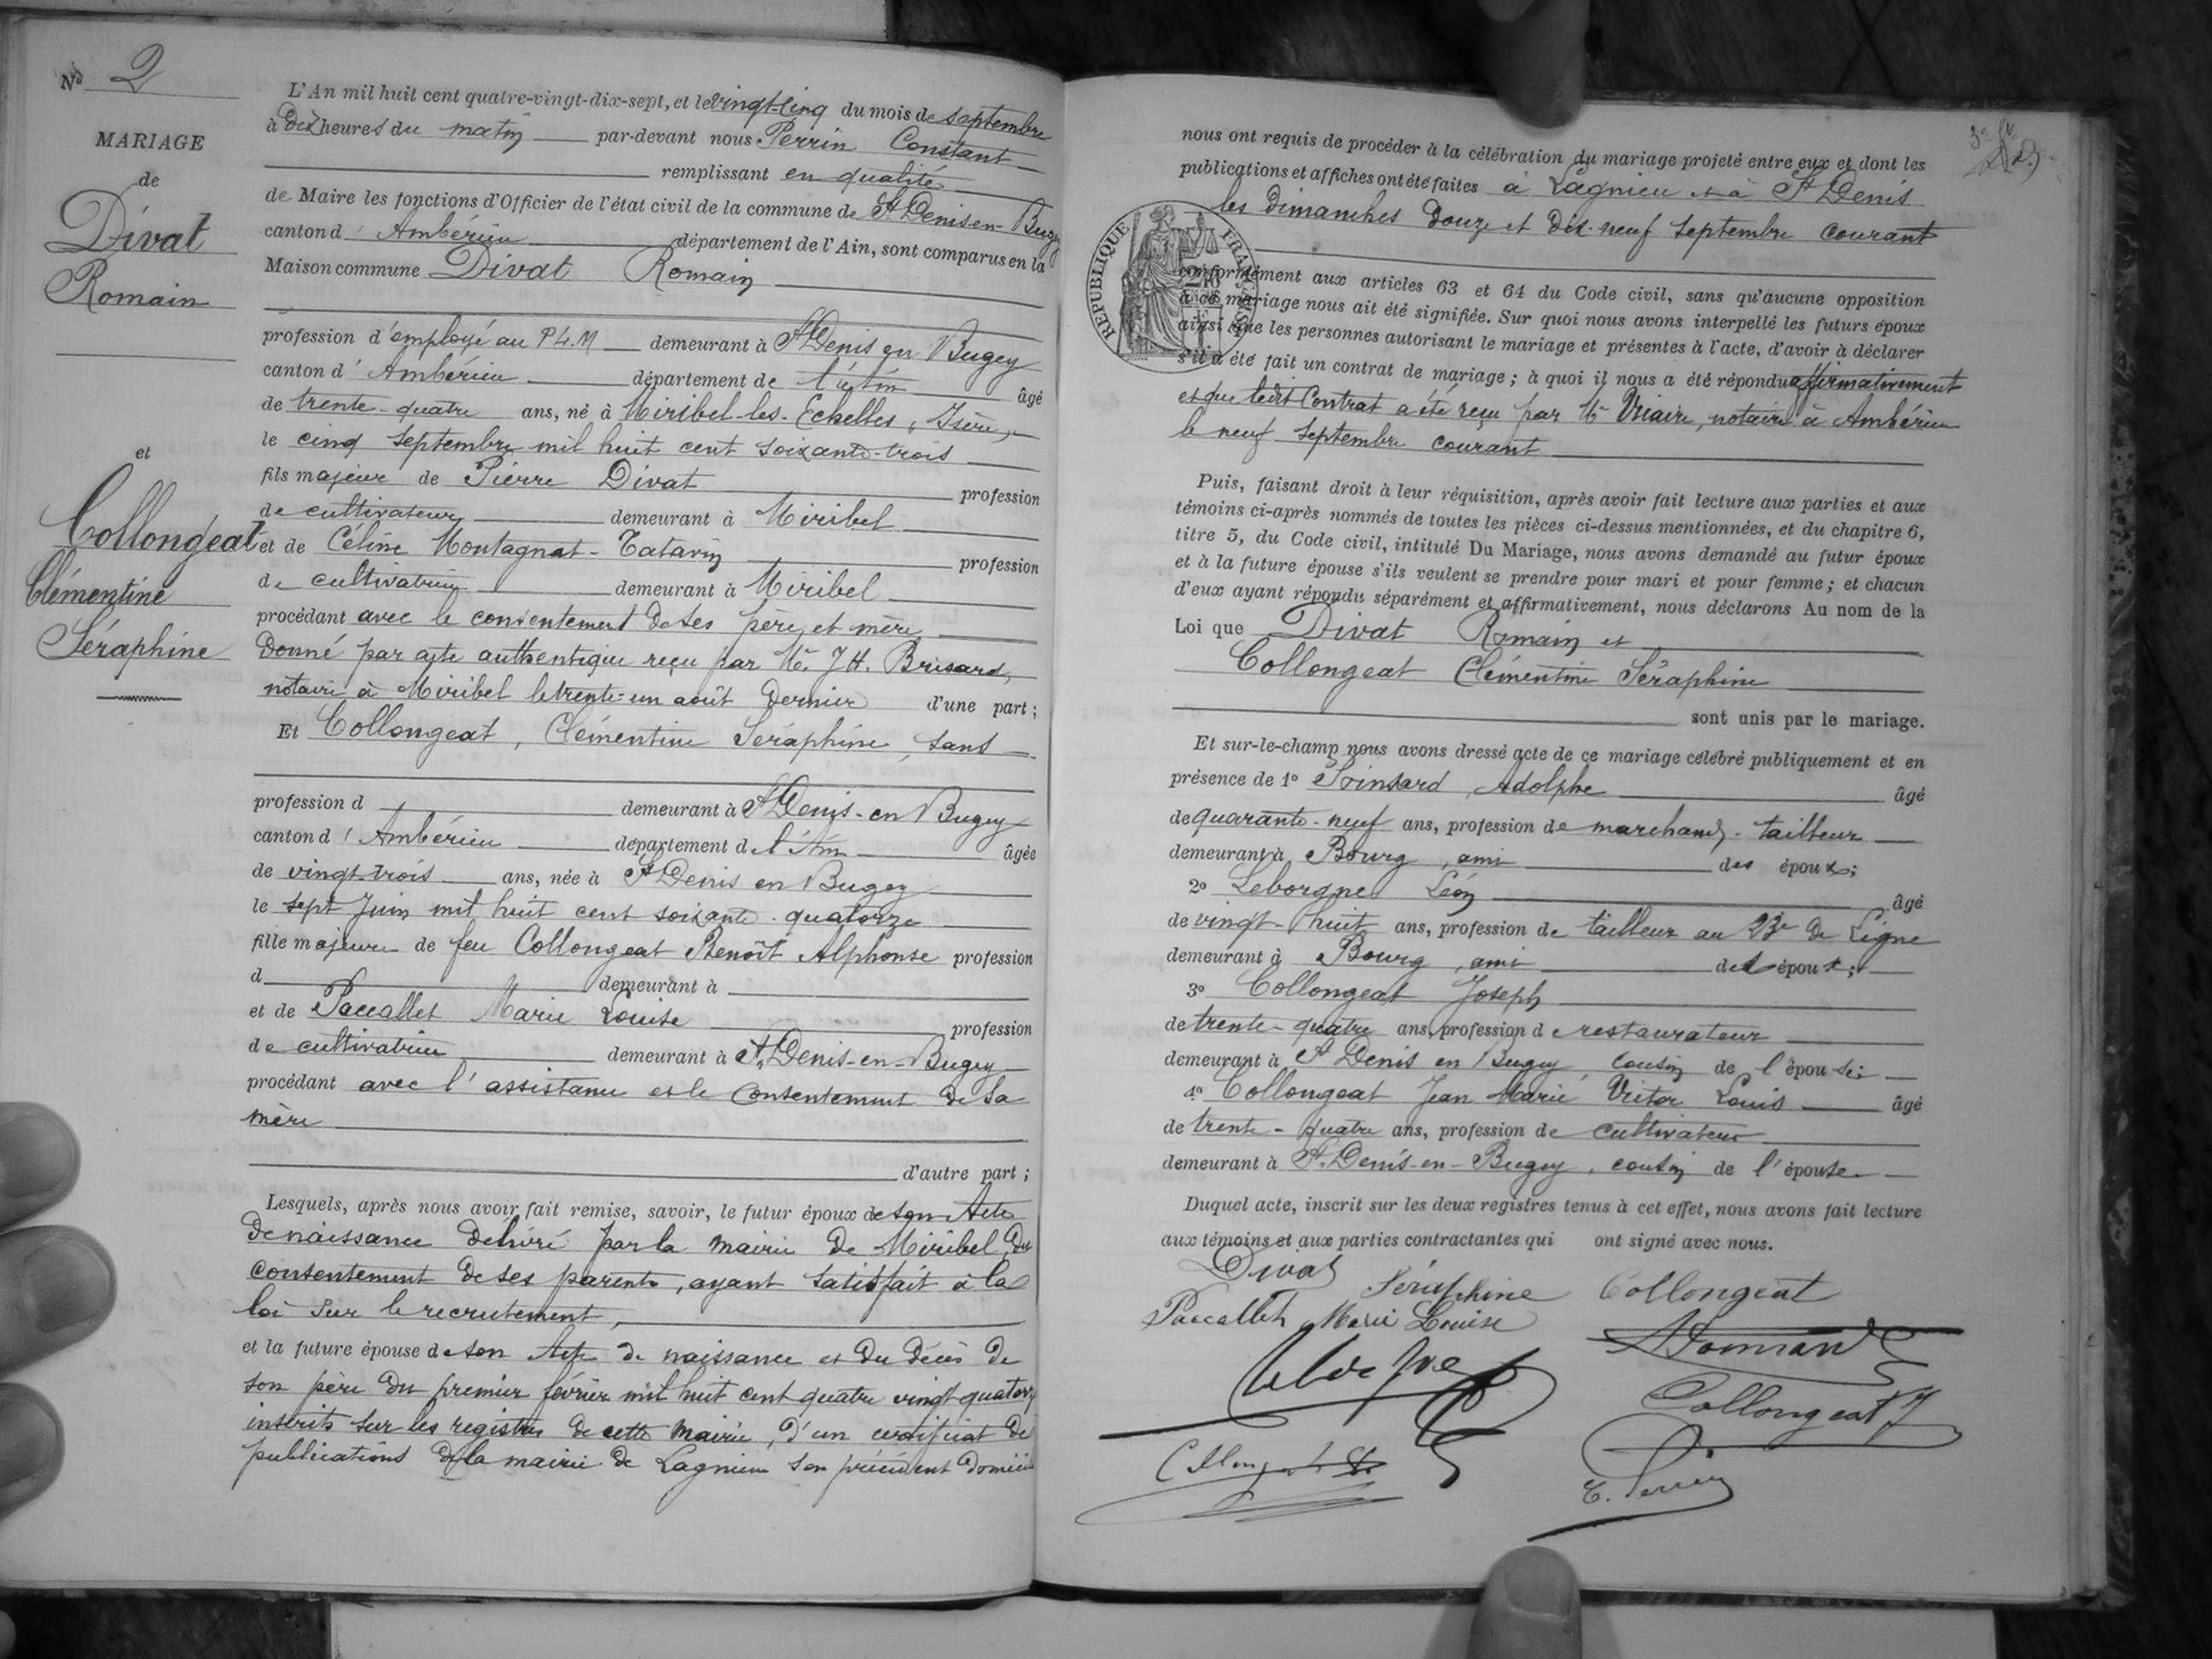 No 2
MARIAGE
de
Divat
Romain
et
Collongeat
Clémentine
Séraphine
L'An mil huit cent quatre-vingt-dix-sept, et le vingt-cinq du mois de septembre
à dix heures du matin par-devant nous Perrin Constant
remplissant en qualité
de Maire les fonctions d'Officier de l'état civil de la commune de St Denis en-Bugey
canton d'Ambérieu département de l'Ain, sont comparus en la
Maison commune Divat Romain
profession d'employé au P.L.M demeurant à St Denis en Bugey
canton d'Ambérieu département de l'Ain âgé
de trente-quatre ans, né à Miribel-les-Echelles, Isère,
le cinq septembre mil huit cent soixante-trois
fils majeur de Pierre Divat profession
de cultivateur demeurant à Miribel
et de Céline Montagnat-Tatavin profession
de cultivatrice demeurant à Miribel
procédant avec le consentement de ses père et mère
donné par acte authentique reçu par Me J H. Brisard,
notaire à Miribel le trente-un août dernier d'une part;
Et Collongeat, Clémentine Séraphine, sans
profession d demeurant à St Denis-en Bugey
canton d'Ambérieu département de l'Ain âgée
de vingt-trois ans, née à St Denis en Bugey
le sept Juin mil huit cent soixante-quatorze
fille majeure de feu Collongeat Benoît Alphonse profession
d demeurant à
et de Paccallet Marie Louise profession
de cultivatrice demeurant à St Denis-en-Bugey
procédant avec l'assistance et le consentement de sa
mère
d'autre part;
Lesquels, après nous avoir fait remise, savoir, le futur époux de son Acte
de naissance délivré par la mairie de Miribel, du
consentement de ses parents, ayant satisfait à la
loi sur le recrutement,
et la future épouse de son Acte de naissance et du décès de
son père du premier février mil huit cent quatre vingt-quatorze
inscrits sur les registres de cette mairie, d'un certificat de
publications de la mairie de Lagnieu son précédent domicile
nous ont requis de procéder à la célébration du mariage projeté entre eux et dont les
publications et affiches ont été faites à Lagnieu et à St Denis
les dimanches douze et dix-neuf septembre courant
RÉPUBLIQUE FRANÇAISE
conformément aux articles 63 et 64 du Code civil, sans qu'aucune opposition
à ce mariage nous ait été signifiée. Sur quoi nous avons interpellé les futurs époux
ainsi que les personnes autorisant le mariage et présentes à l'acte, d'avoir à déclarer
s'il a été fait un contrat de mariage; à quoi il nous a été répondu affirmativement
et que ledit Contrat a été reçu par Me notaire à Ambérieu
le neuf septembre courant
Puis, faisant droit à leur réquisition, après avoir fait lecture aux parties et aux
témoins ci-après nommés de toutes les pièces ci-dessus mentionnées, et du chapitre 6,
titre 5, du Code civil, intitulé Du Mariage, nous avons demandé au futur époux
et à la future épouse s'ils veulent se prendre pour mari et pour femme; et chacun
d'eux ayant répondu séparément et affirmativement, nous déclarons Au nom de la
Loi que Divat Romain et
Collongeat Clémentine Séraphine
sont unis par le mariage.
Et sur-le-champ nous avons dressé acte de ce mariage célébré publiquement et en
présence de 1o Adolphe âgé
de quarante-neuf ans, profession de marchand-tailleur
demeurant à Bourg, ami des époux;
2o Leborgne Léon âgé
de vingt-huit ans, profession de tailleur au 23e de Ligne
demeurant à Bourg, ami des époux;
3o Collongeat Joseph
de trente-quatre ans, profession de restaurateur
demeurant à St Denis en Bugey, cousin de l'épouse;
4o Collongeat Jean Marie Victor Louis âgé
de trente-quatre ans, profession de cultivateur
demeurant à St Denis-en-Bugey, cousin de l'épouse
Duquel acte, inscrit sur les deux registres tenus à cet effet, nous avons fait lecture
aux témoins et aux parties contractantes qui ont signé avec nous.
Divat
Séraphine Collongeat
Paccallet Marie Louise
Collongeat J
C. Perrin